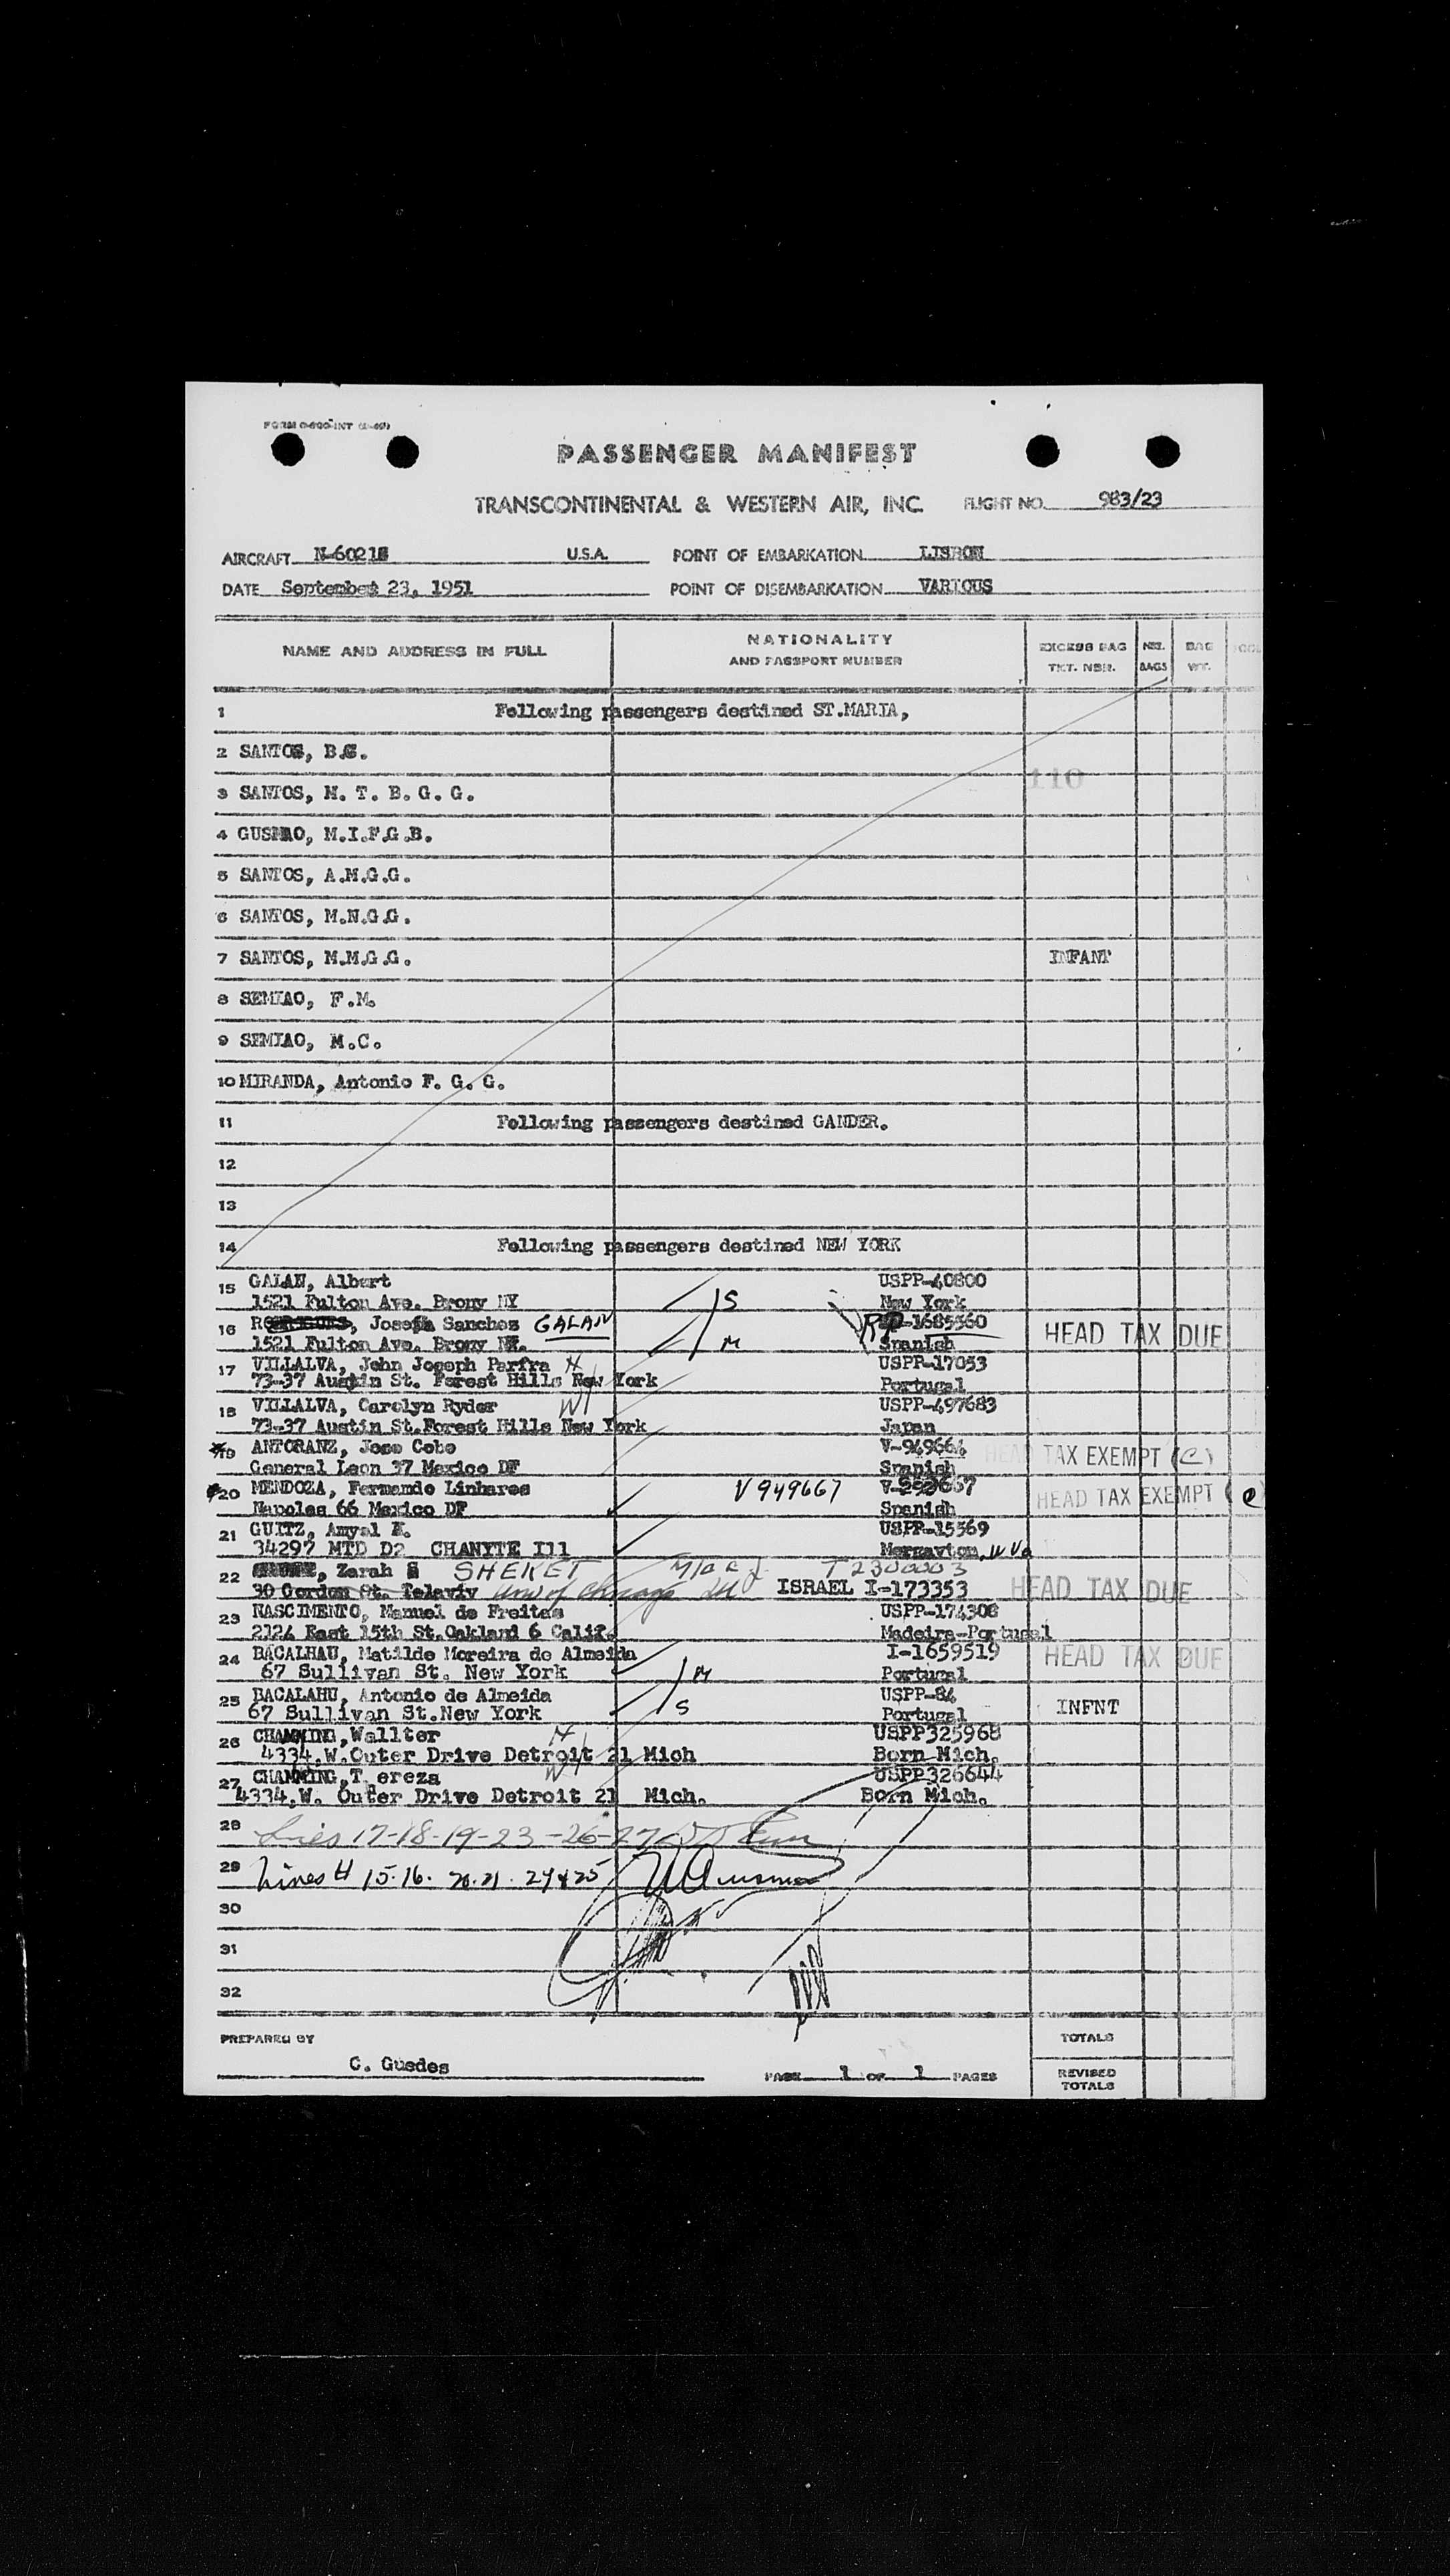 FORM 0-600-INT
PASSENGER MANIFEST
TRANSCONTINENTAL & WESTERN AIR, INC. FLIGHT NO. 983/23
AIRCRAFT N-6021 U.S.A. POINT OF EMBARKATION LISBON
DATE September 23, 1951 POINT OF DISEMBARKATION VARIOUS
NAME AND ADDRESS IN FULL NATIONALITY AND PASSPORT NUMBER EXCESS BAG TKT. NBR. NBR. BAGS BAG WT.
1 Following passengers destined ST.MARIA,
2 SANTOS, B.G.
110
3 SANTOS, M. T. B. G. G.
4 GUSMAO, M.I.F.G.B.
5 SANTOS, A.M.G.G.
6 SANTOS, M.N.G.G.
7 SANTOS, M.M.G.G. INFANT
8 SEMIAO, F.M.
9 SEMIAO, M.C.
10 MIRANDA, Antonio F. G. G.
11 Following passengers destined GANDER.
12
13
14 Following passengers destined NEW YORK
15 GALAN, Albert USPP-40800
1521 Fulton Ave. Bronx NY S New York
16 Josefa Sanchez GALAN RP-1685560
1521 Fulton Ave. Bronx NY. M Spanish HEAD TAX DUE
17 VILLALVA, John Joseph Parfra H USPP-17053
73-37 Austin St. Forest Hills New York Portugal
18 VILLALVA, Carolyn Ryder W USPP-497683
73-37 Austin St.Forest Hills New York Japan
19 ANTORANZ, Jose Cobo V-949664 HEAD TAX EXEMPT (C)
General Leon 37 Mexico DF Spanish
20 MENDOZA, Fernando Linhares V949667
Napoles 66 Mexico DF Spanish HEAD TAX EXEMPT (C)
21 GUITZ, Amyal K. USPP-15569
34297 MTD D2 CHANYTE Ill W Va
22 Zarah S SHEKET T230003
30 Gordon St. Telaviv Univ of Chicago Ill ISRAEL I-173353 HEAD TAX DUE
23 NASCIMENTO, Manuel de Freitas USPP-174308
2124 East 15th St.Oakland 6 Calif. Madeira-Portugal
24 BACALHAU, Matilde Moreira de Almeida I-1659519 HEAD TAX DUE
67 Sullivan St. New York M Portugal
25 BACALAHU, Antonio de Almeida USPP-84 INFNT
67 Sullivan St.New York S Portugal
26 CHAMMING, Wallter H USPP325968
4334.W.Outer Drive Detroit 21 Mich Born Mich.
27 CHAMMING,T ereza W USPP326644
4334.W. Outer Drive Detroit 21 Mich. Born Mich.
28 Lines 17-18-19-23-26-27
29 Lines # 15.16. 20.21. 24&25
30
31
32
PREPARED BY TOTALS
C. Guedes PAGE 1 OF 1 PAGES REVISED TOTALS